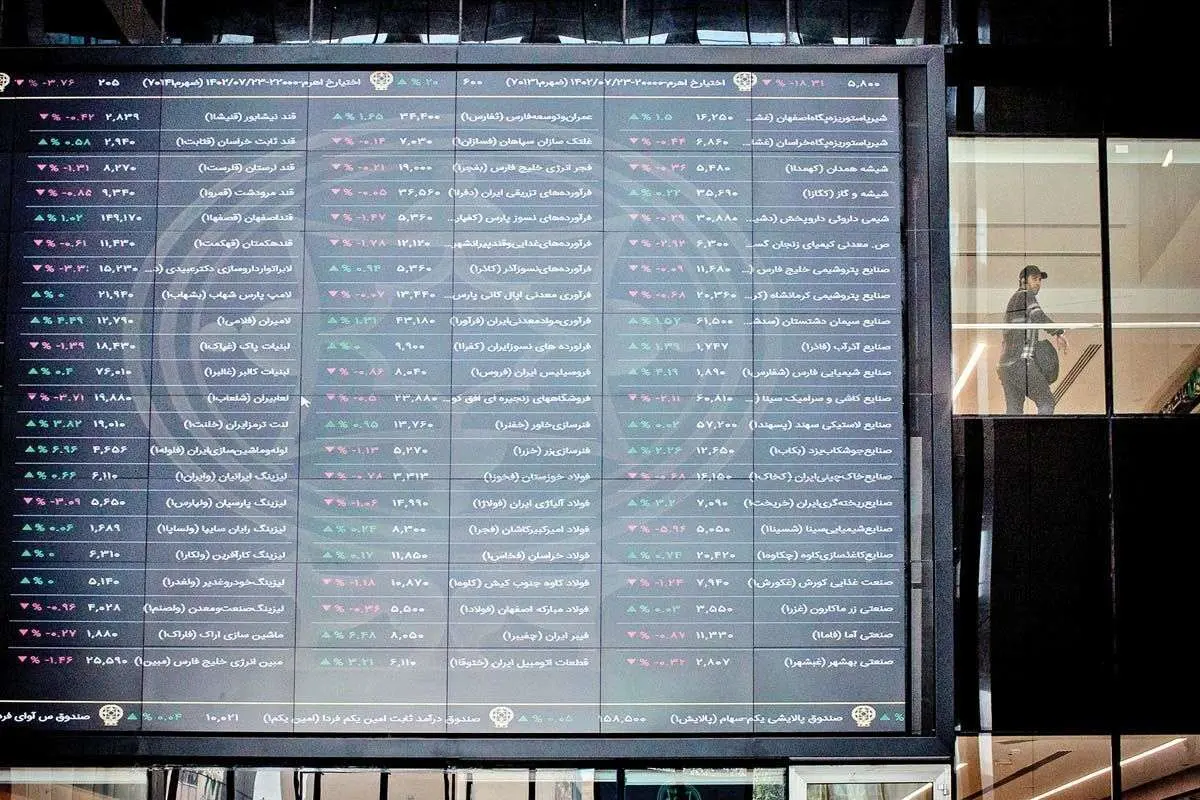 ۵,۸۰۰ ▼ % -۱۸.۳۱ اختیارخ اهرم-۲۰۰۰۰-۱۴۰۲/۰۷/۲۳ (ضهرم۷۰۱۳۱) ۶۰۰ ▲ % ۲۰ اختیارخ اهرم-۲۲۰۰۰-۱۴۰۲/۰۷/۲۳ (ضهرم۷۰۱۴۱) ۲۰۵ ▼ % -۳.۷۶
شیرپاستوریزه‌پگاه‌اصفهان (غش... ۱۶,۲۵۰ ▲ % ۱.۵ عمران‌وتوسعه‌فارس (ثفارس۱) ۳۴,۴۰۰ ▲ % ۱.۶۵ قند نیشابور (قنیشا۱) ۲,۸۳۹ ▼ % -۰.۴۲
شیرپاستوریزه‌پگاه‌خراسان (غشا... ۶,۸۶۰ ▼ % -۰.۴۴ غلتک سازان سپاهان (فسازان۱) ۷,۰۳۰ ▼ % -۰.۱۴ قند ثابت خراسان (قثابت۱) ۲,۹۴۰ ▲ % ۰.۵۸
شیشه همدان (کهمدا۱) ۵,۴۸۰ ▼ % -۰.۳۶ فجر انرژی خلیج فارس (بفجر۱) ۱۹,۰۰۰ ▼ % -۰.۲۱ قند لرستان (قلرست۱) ۸,۲۷۰ ▼ % -۱.۳۱
شیشه و گاز (کگاز۱) ۳۵,۶۹۰ ▲ % ۰.۲۲ فرآورده‌های تزریقی ایران (دفرا۱) ۳۶,۵۶۰ ▼ % -۰.۰۵ قند مرودشت (قمرو۱) ۹,۳۴۰ ▼ % -۰.۸۵
شیمی داروئی داروپخش (دشی... ۳۰,۸۸۰ ▼ % -۰.۲۹ فرآورده‌های نسوز پارس (کفپار... ۵,۳۶۰ ▼ % -۱.۴۷ قنداصفهان (قصفها۱) ۱۴۹,۱۷۰ ▲ % ۱.۰۲
ص. معدنی کیمیای زنجان گس... ۶,۳۰۰ ▼ % -۲.۹۲ فرآورده‌های‌غذایی‌وقندپیرانشهر... ۱۲,۱۲۰ ▼ % -۱.۷۸ قندهکمتان (قهکمت۱) ۱۱,۴۳۰ ▼ % -۰.۶۱
صنایع پتروشیمی خلیج فارس (... ۱۱,۶۸۰ ▼ % -۰.۰۹ فرآورده‌های‌نسوزآذر (کاذر۱) ۵,۳۶۰ ▲ % ۰.۹۴ لابراتوارداروسازی دکترعبیدی (د... ۱۵,۲۳۰ ▼ % -۳.۳
صنایع پتروشیمی کرمانشاه (کر... ۲۰,۳۶۰ ▼ % -۰.۶۸ فرآوری معدنی اپال کانی پارس... ۱۳,۴۴۰ ▼ % -۰.۰۷ لامپ پارس شهاب (پشهاب۱) ۲۱,۹۴۰ ▲ % ۰
صنایع سیمان دشتستان (سدش... ۶۱,۵۰۰ ▲ % ۱.۵۷ فرآوری‌موادمعدنی‌ایران (فرآور۱) ۴۳,۱۸۰ ▲ % ۱.۳۱ لامیران (فلامی۱) ۱۲,۷۹۰ ▲ % ۴.۴۹
صنایع آذرآب (فاذر۱) ۱,۷۴۷ ▲ % ۱.۳۹ فراورده های نسوزایران (کفرا۱) ۹,۹۰۰ ▲ % ۰ لبنیات پاک (غپاک۱) ۱۸,۴۳۰ ▼ % -۱.۳۹
صنایع شیمیایی فارس (شفارس۱) ۱,۸۹۰ ▲ % ۴.۱۹ فروسیلیس ایران (فروس۱) ۸,۰۴۰ ▼ % -۰.۸۶ لبنیات کالبر (غالبر۱) ۷۶,۰۱۰ ▲ % ۰.۴
صنایع کاشی و سرامیک سینا (... ۶۰,۸۱۰ ▼ % -۲.۱۱ فروشگاههای زنجیره ای افق کو... ۲۳,۸۸۰ ▼ % -۰.۵ لعابیران (شلعاب۱) ۱۹,۸۸۰ ▼ % -۳.۷۱
صنایع لاستیکی سهند (پسهند۱) ۵۷,۲۰۰ ▲ % ۰.۰۲ فنرسازی‌خاور (خفنر۱) ۱۳,۷۶۰ ▲ % ۰.۹۵ لنت ترمزایران (خلنت۱) ۱۹,۰۱۰ ▲ % ۳.۸۲
صنایع‌جوشکاب‌یزد (بکاب۱) ۱۲,۶۵۰ ▲ % ۲.۲۶ فنرسازی‌زر (خزر۱) ۵,۲۷۰ ▼ % -۱.۱۳ لوله‌وماشین‌سازی‌ایران (فلوله۱) ۴,۶۵۶ ▲ % ۶.۹۶
صنایع‌خاک‌چینی‌ایران (کخاک۱) ۱۶,۱۵۰ ▼ % -۰.۶۸ فولاد خوزستان (فخوز۱) ۳,۳۱۳ ▼ % -۰.۷۸ لیزینگ ایرانیان (وایران۱) ۶,۱۱۰ ▲ % ۰.۶۶
صنایع‌ریخته‌گری‌ایران (خریخت۱) ۷,۰۹۰ ▲ % ۳.۲ فولاد آلیاژی ایران (فولاژ۱) ۱۴,۹۹۰ ▼ % -۱.۰۶ لیزینگ پارسیان (ولپارس۱) ۵,۶۵۰ ▼ % -۳.۰۹
صنایع‌شیمیایی‌سینا (شسینا۱) ۵,۰۵۰ ▼ % -۵.۹۶ فولاد امیرکبیرکاشان (فجر۱) ۸,۳۰۰ ▲ % ۰.۲۴ لیزینگ رایان سایپا (ولساپا۱) ۱,۶۸۹ ▲ % ۰.۰۶
صنایع‌کاغذسازی‌کاوه (چکاوه۱) ۲۰,۴۲۰ ▲ % ۰.۷۴ فولاد خراسان (فخاس۱) ۱۱,۸۵۰ ▲ % ۰.۱۷ لیزینگ کارآفرین (ولکار۱) ۶,۳۱۰ ▲ % ۰
صنعت غذایی کورش (غکورش۱) ۷,۹۴۰ ▼ % -۱.۲۴ فولاد کاوه جنوب کیش (کاوه۱) ۱۰,۸۷۰ ▼ % -۱.۱۸ لیزینگ‌خودروغدیر (ولغدر۱) ۵,۱۴۰ ▲ % ۰
صنعتی زر ماکارون (غزر۱) ۳,۵۵۰ ▲ % ۰.۰۳ فولاد مبارکه اصفهان (فولاد۱) ۵,۵۰۰ ▼ % -۰.۳۶ لیزینگ‌صنعت‌ومعدن (ولصنم۱) ۴,۰۲۸ ▼ % -۰.۹۶
صنعتی آما (فاما۱) ۱۱,۳۳۰ ▼ % -۰.۸۷ فیبر ایران (چفیبر۱) ۸,۰۵۰ ▲ % ۶.۴۸ ماشین سازی اراک (فاراک۱) ۱,۸۸۰ ▼ % -۰.۲۷
صنعتی بهشهر (غبشهر۱) ۲,۸۰۷ ▼ % -۰.۳۲ قطعات اتومبیل ایران (ختوقا۱) ۶,۱۱۰ ▲ % ۳.۲۱ مبین انرژی خلیج فارس (مبین۱) ۲۵,۵۹۰ ▼ % -۱.۴۶
▲ % صندوق پالایشی یکم-سهام (پالایش۱) ۱۵۸,۵۰۰ ▲ % ۰.۰۵ صندوق درآمد ثابت امین یکم فردا (امین یکم۱) ۱۰,۰۲۱ ▲ % ۰.۰۴ صندوق س آوای فرد